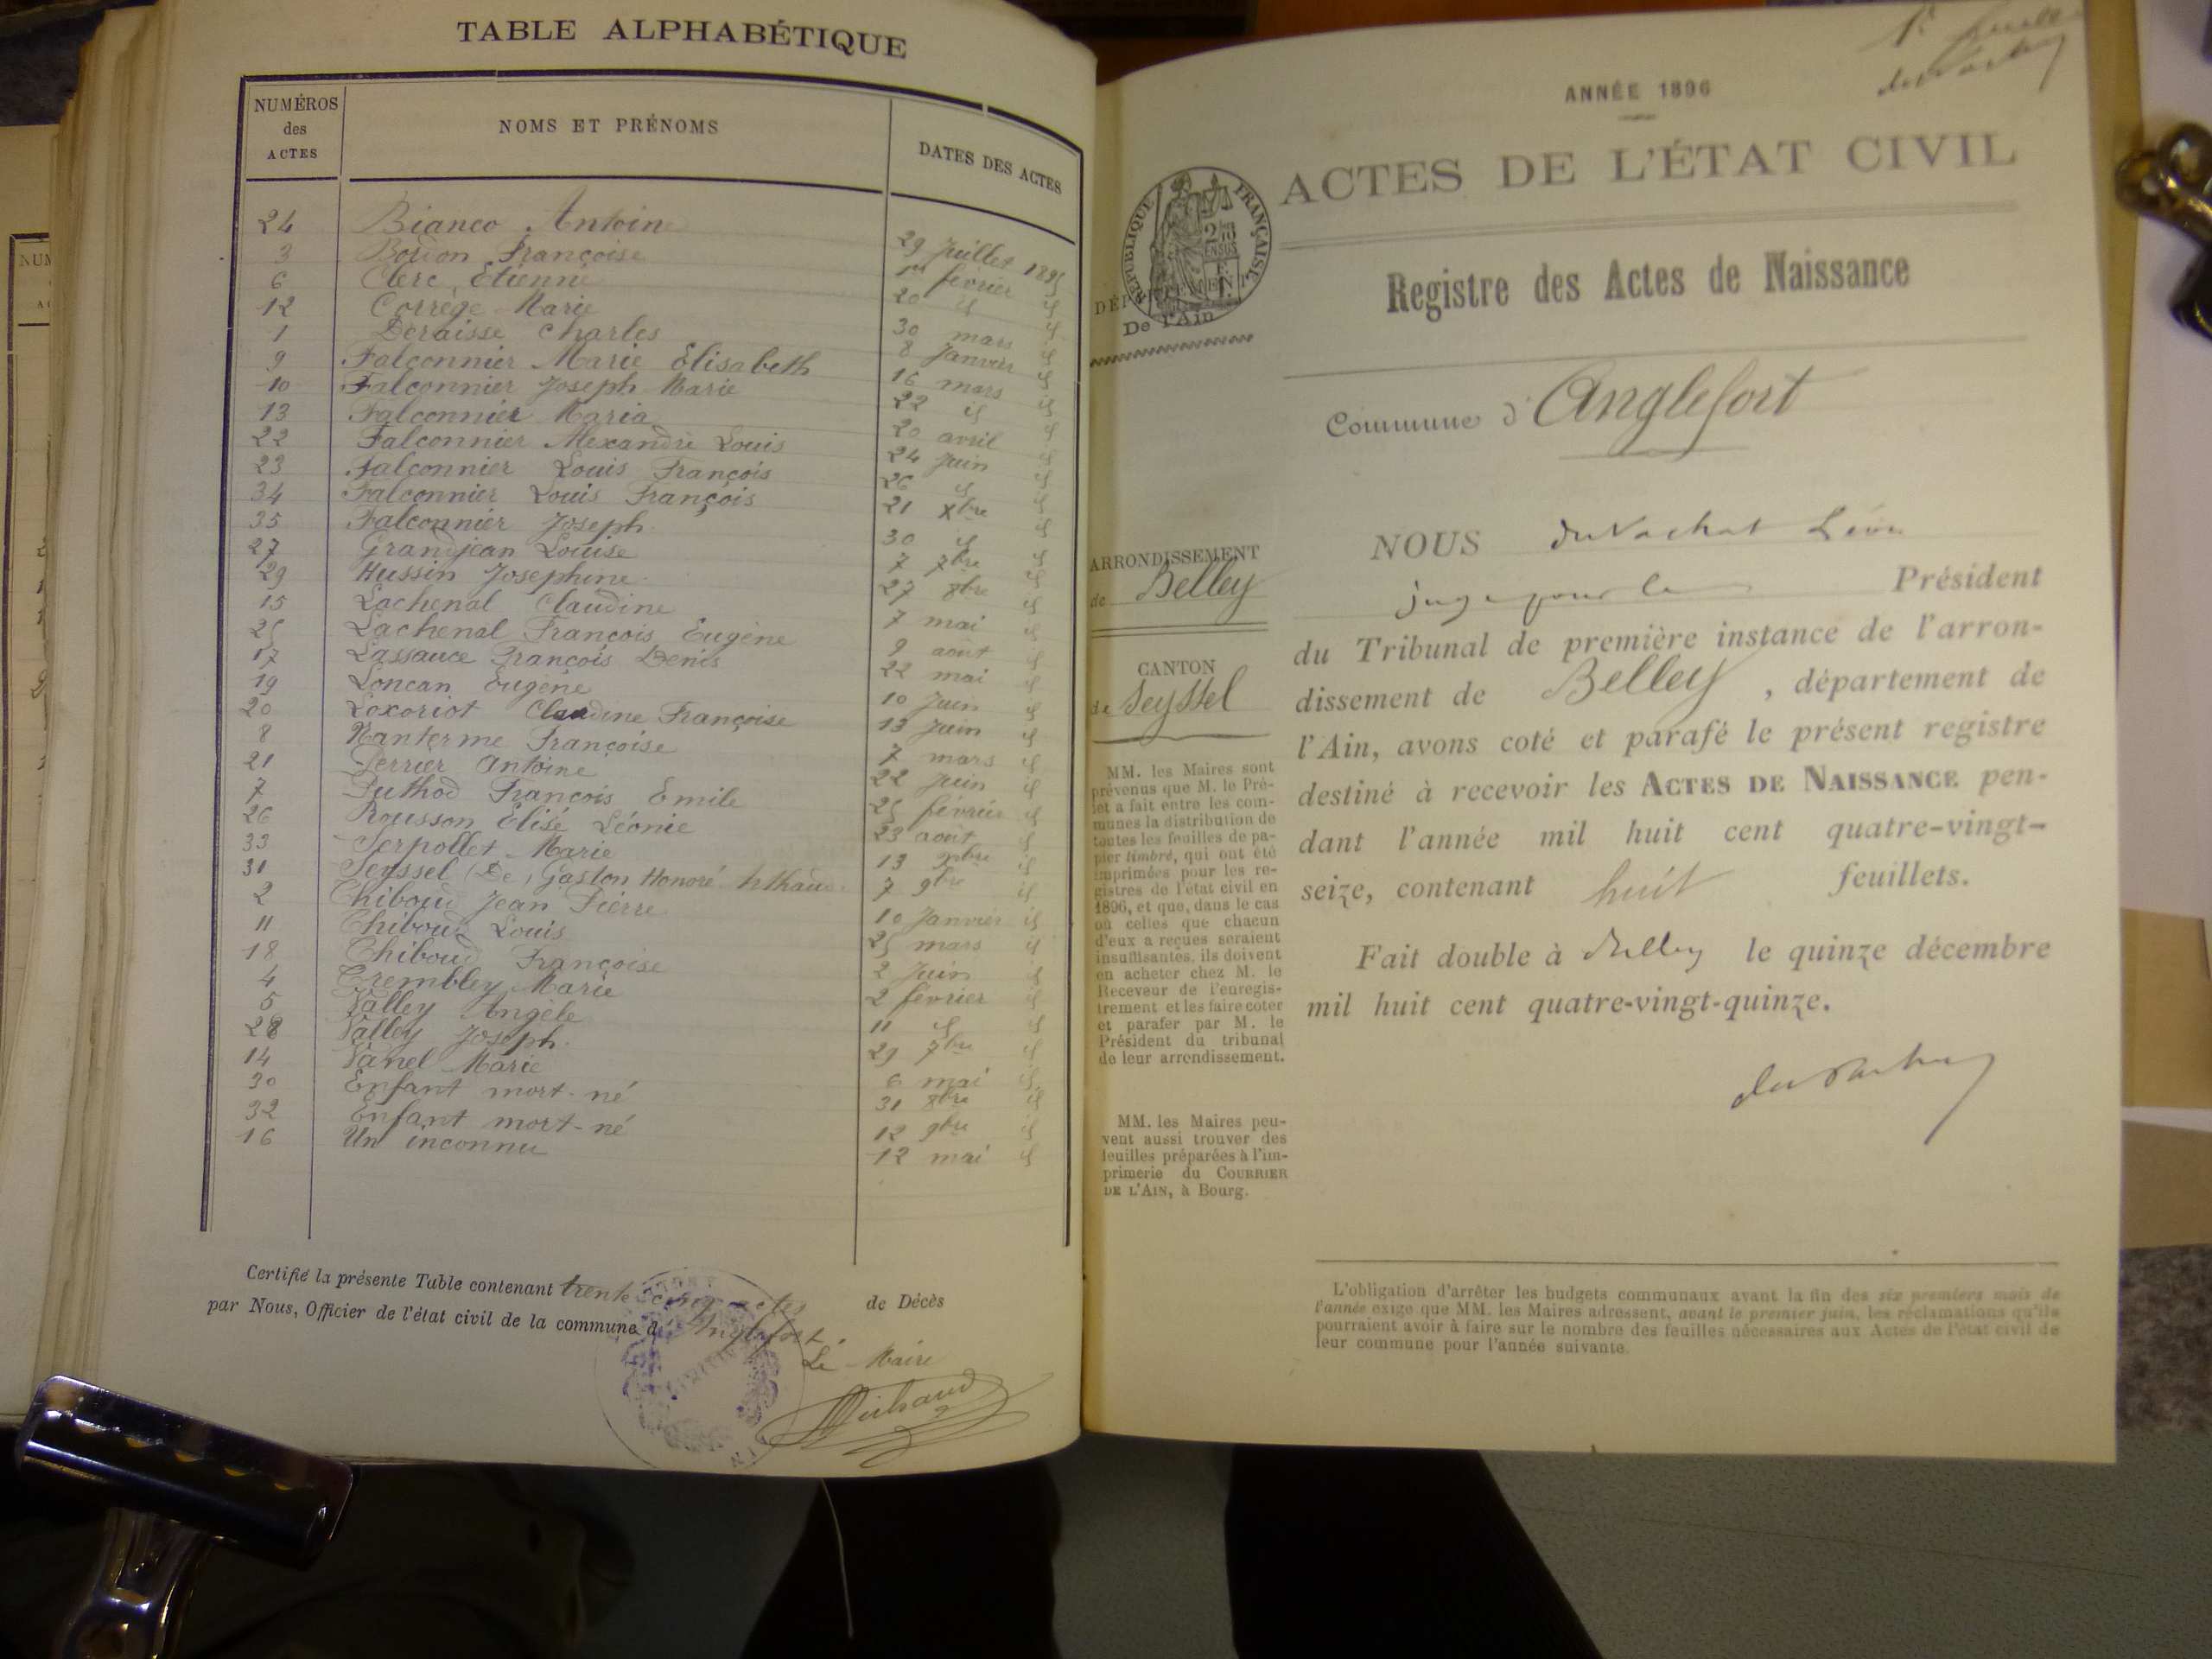 TABLE ALPHABÉTIQUE
NUMÉROS des ACTES NOMS ET PRÉNOMS DATES DES ACTES
24 Bianco Antoine 29 Juillet 1895
3 Bordon Françoise 1er février id
6 Clerc Etienne 20 id id
12 Corrège Marie 30 mars id
1 Deraisse Charles 8 Janvier id
9 Falconnier Marie Elisabeth 16 mars id
10 Falconnier Joseph Marie 22 id id
13 Falconnier Maria 20 avril id
22 Falconnier Alexandre Louis 24 Juin id
23 Falconnier Louis François 26 id id
34 Falconnier Louis François 21 Xbre id
35 Falconnier Joseph 30 id id
27 Grandjean Louise 7 7bre id
29 Hussin Josephine 27 8bre id
15 Lachenal Claudine 7 mai id
25 Lachenal François Eugène 9 août id
17 Lassauce François Denis 22 mai id
19 Loncan Eugène 10 Juin id
20 Loxoriot Claudine Françoise 13 Juin id
8 Nanterme Françoise 7 mars id
21 Perrier Antoine 22 Juin id
7 Puthod François Emile 25 février id
26 Rousson Elisé Léonie 23 août id
33 Serpollet Marie 13 id
31 Seyssel (De) Gaston Honoré Arthaud 7 9bre id
2 Thiboud Jean Pierre 10 Janvier id
11 Thiboud Louis 25 mars id
18 Thiboud Françoise 2 Juin id
4 Trembley Marie 2 février id
5 Valley Angèle 11 id id
28 Valley Joseph 29 7bre id
14 Vanel Marie 6 mai id
30 Enfant mort-né 31 8bre id
32 Enfant mort-né 12 9bre id
16 Un inconnu 12 mai id
Certifié la présente Table contenant trente cinq actes de Décès
par Nous, Officier de l'état civil de la commune d'Anglefort.
Le Maire
ANNÉE 1896
ACTES DE L'ÉTAT CIVIL
RÉPUBLIQUE FRANÇAISE
DÉPARTEMENT
De l'Ain
Registre des Actes de Naissance
Commune d'Anglefort
ARRONDISSEMENT
de Belley
CANTON
de Seyssel
MM. les Maires sont
prévenus que M. le Pré-
fet a fait entre les com-
munes la distribution de
toutes les feuilles de pa-
pier timbré, qui ont été
imprimées pour les re-
gistres de l'état civil en
1896, et que, dans le cas
où celles que chacun
d'eux a reçues seraient
insuffisantes, ils doivent
en acheter chez M. le
Receveur de l'enregis-
trement et les faire coter
et parafer par M. le
Président du tribunal
de leur arrondissement.
MM. les Maires peu-
vent aussi trouver des
feuilles préparées à l'im-
primerie du COURRIER
DE L'AIN, à Bourg.
NOUS du Vachat Léon
juge pour le Président
du Tribunal de première instance de l'arron-
dissement de Belley, département de
l'Ain, avons coté et parafé le présent registre
destiné à recevoir les ACTES DE NAISSANCE pen-
dant l'année mil huit cent quatre-vingt-
seize, contenant huit feuillets.
Fait double à Belley le quinze décembre
mil huit cent quatre-vingt-quinze.
L'obligation d'arrêter les budgets communaux avant la fin des six premiers mois de
l'année exige que MM. les Maires adressent, avant le premier juin, les réclamations qu'ils
pourraient avoir à faire sur le nombre des feuilles nécessaires aux Actes de l'état civil de
leur commune pour l'année suivante.